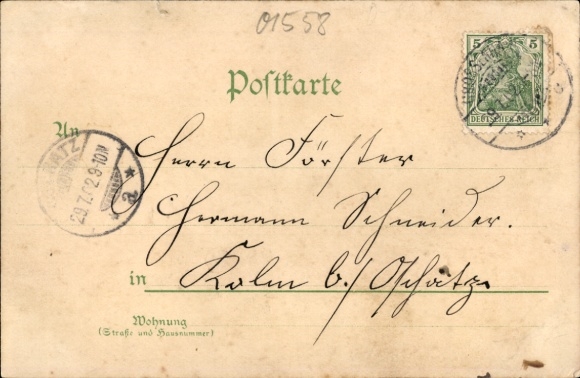 01558
Postkarte
5 5
DEUTSCHES REICH
An
Herrn Förster
Hermann Schneider.
in Kolm b./Oschatz
Wohnung
(Straße und Hausnummer)
29.7.02.9-10N
a